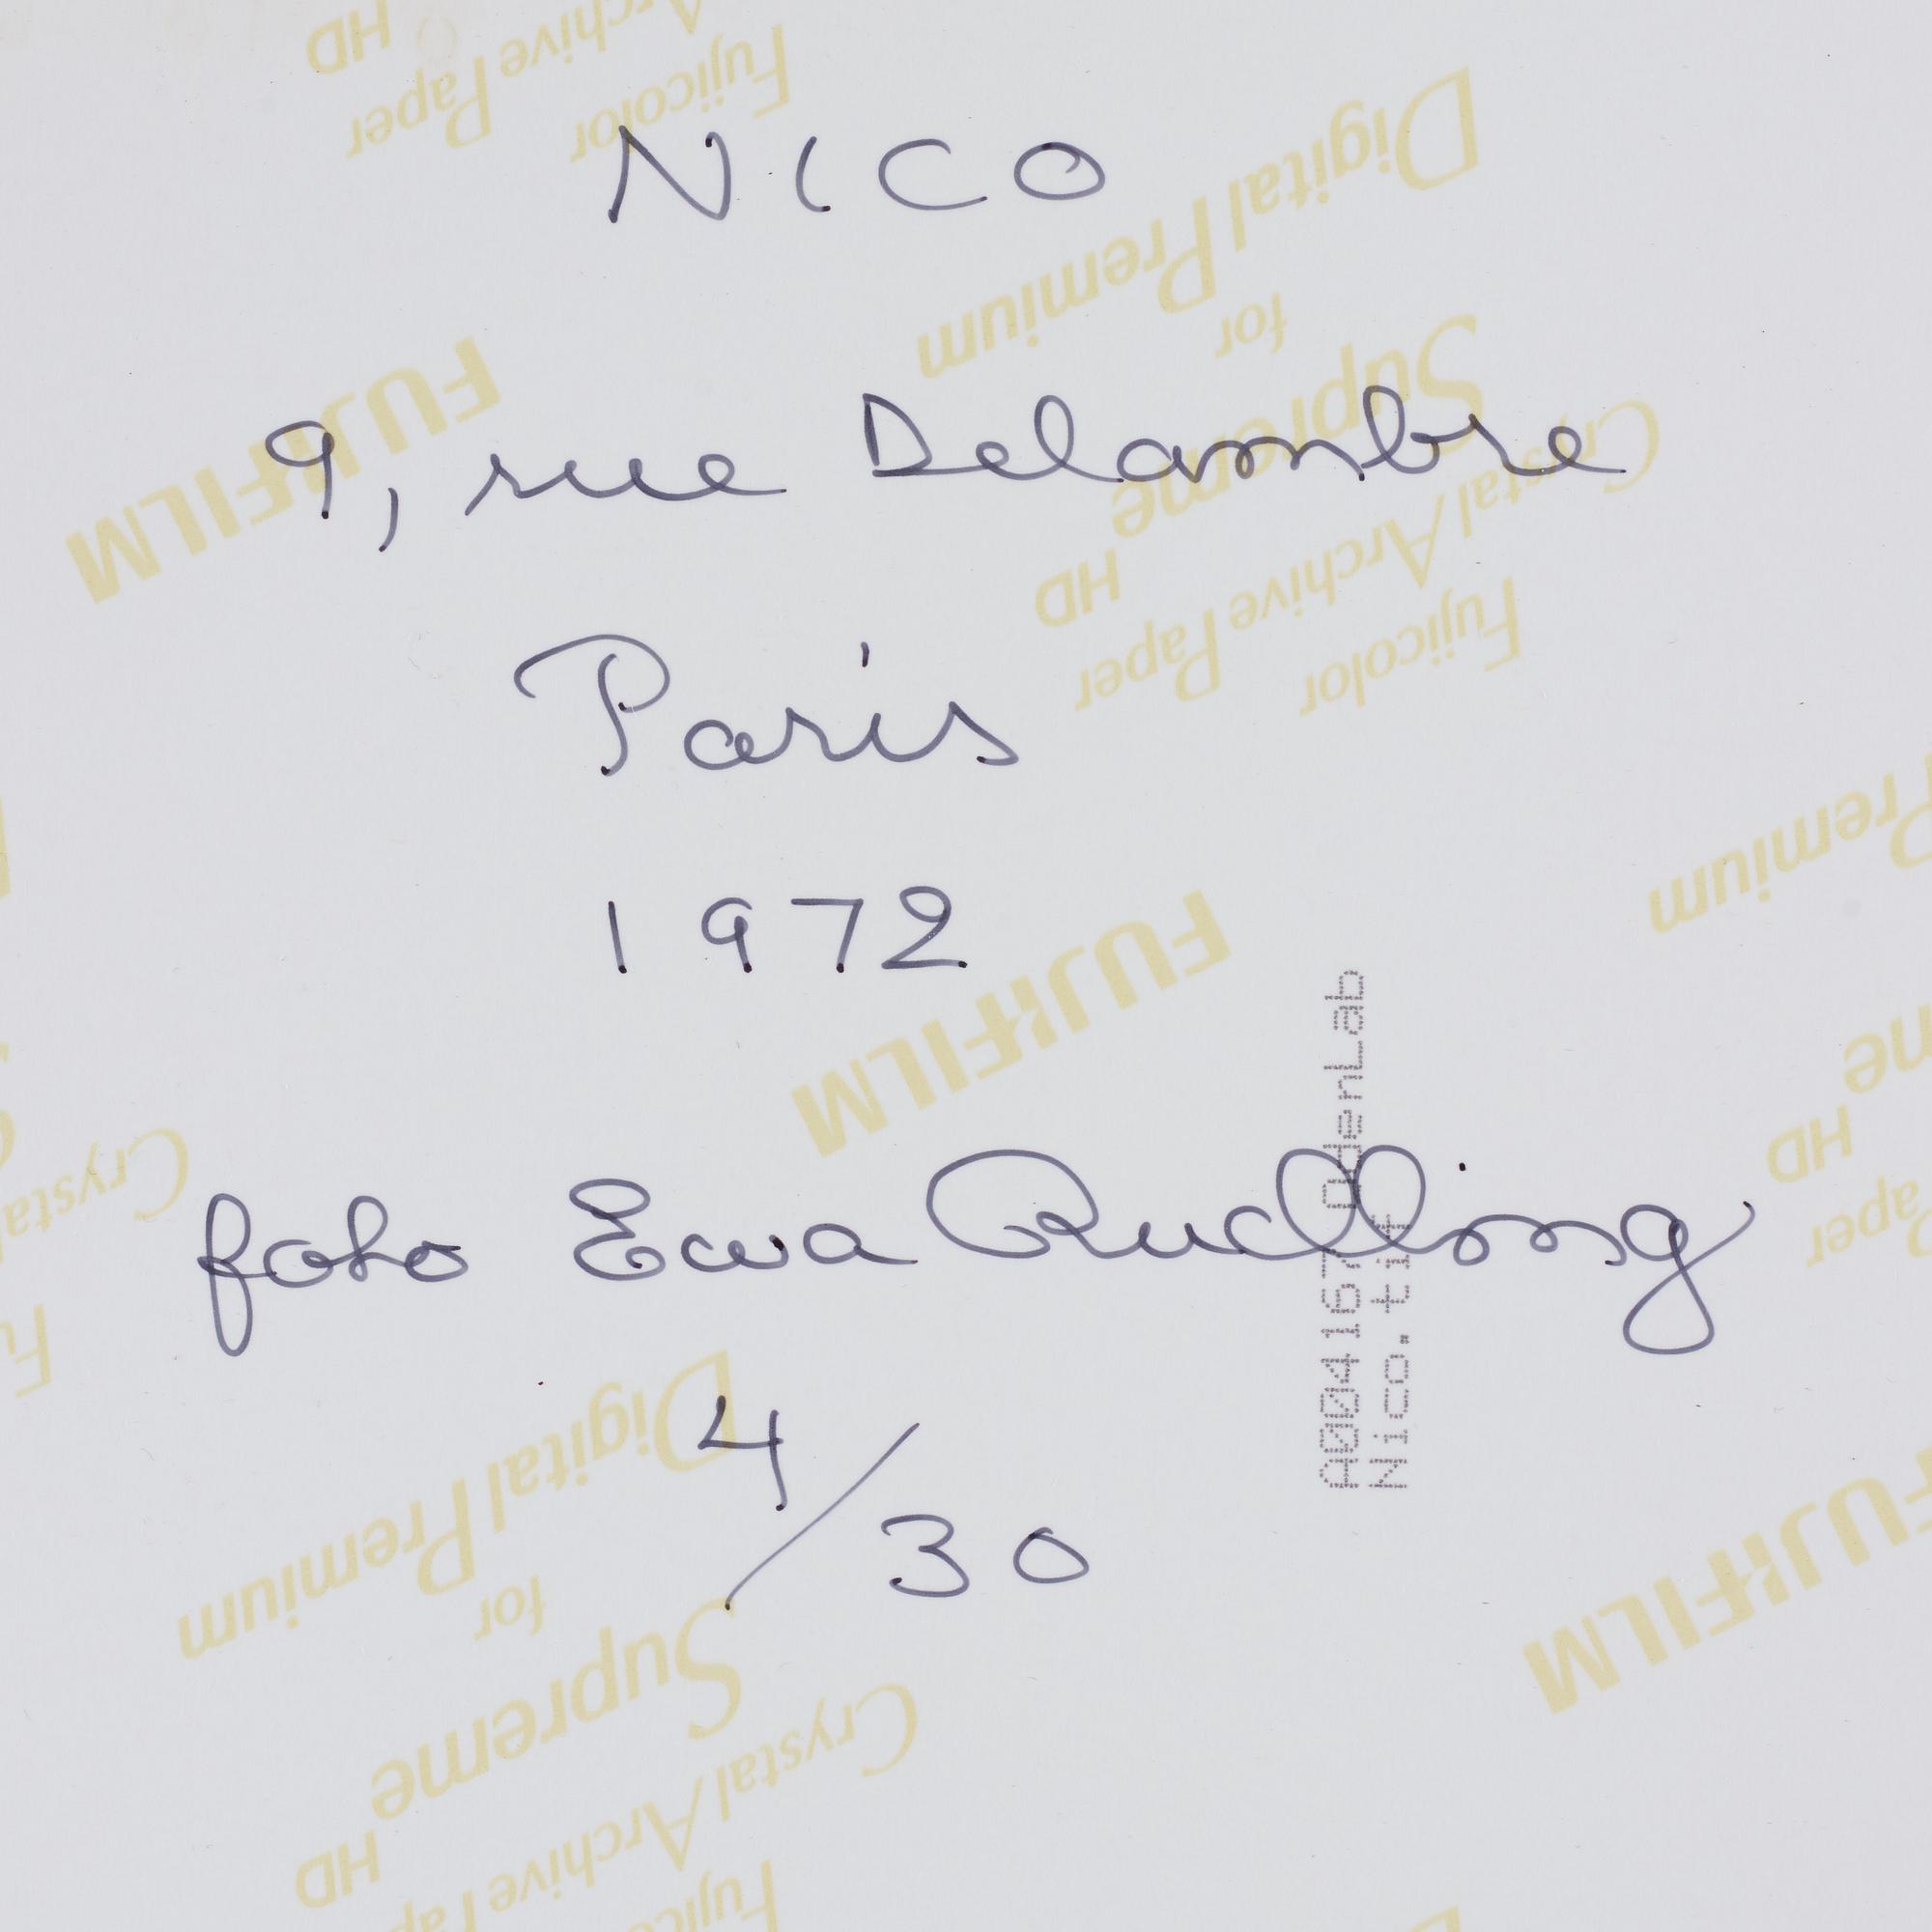 NICO
9, rue Delambre
Paris
1972
foto Ewa Rudling
4/30
Nico.tif
FUJIFILM
Digital Premium
for
Supreme
Crystal Archive Paper
HD
Fujicolor
FUJIFILM
Fujicolor
Archive Paper
HD
Premium
FUJIFILM
Digital Premium
for
Supreme
Crystal Archive Paper
HD